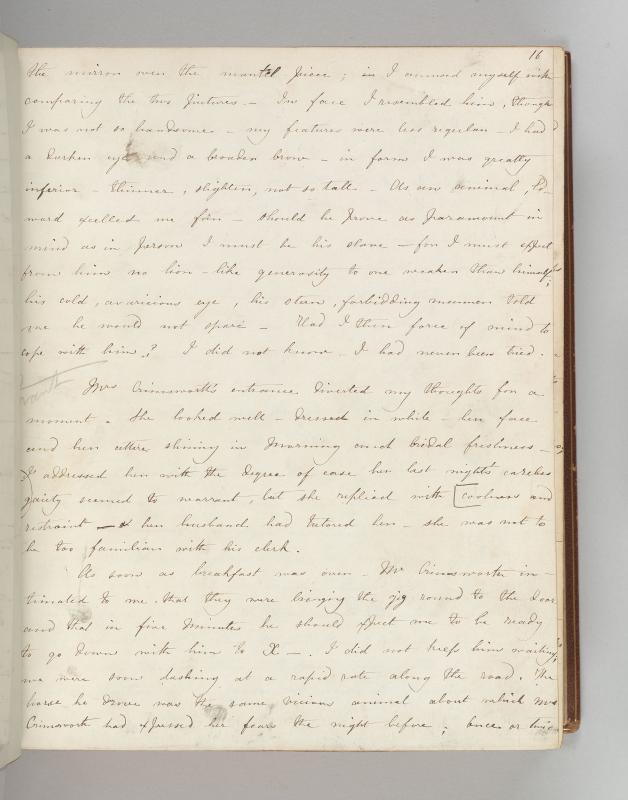 16
the mirror over the mantel piece ; in I amused myself with
comparing the two pictures — In face I resembled him, though
I was not so handsome — my features were less regular — I had
a darker eye and a broader brow — in form I was greatly
inferior — thinner, slighter, not so tall — As an animal, Ed-
ward excelled me far — should he prove as paramount in
mind as in person I must be his slave — for I must expect
from him no lion-like generosity to one weaker than himself;
his cold, avaricious eye, his stern, forbidding manner told
me he would not spare — Had I then force of mind to
cope with him? I did not know — I had never been tried.
Mrs Crimsworth's entrance diverted my thoughts for a
moment. She looked well — dressed in white — her face
and her attire shining in Morning and bridal freshness —
I addressed her with the degree of ease her last night's careless
gaiety seemed to warrant, but she replied with [coolness and
restraint — her husband had tutored her — she was not to
be too familiar with his clerk.
As soon as breakfast was over — Mr Crimsworth in-
timated to me that they were bringing the gig round to the door
and that in five minutes he should expect me to be ready
to go down with him to X—. I did not keep him waiting;
we were soon dashing at a rapid rate along the road. The
horse he drove was the same vicious animal about which Mrs
Crimsworth had expressed her fears the night before ; once or twice